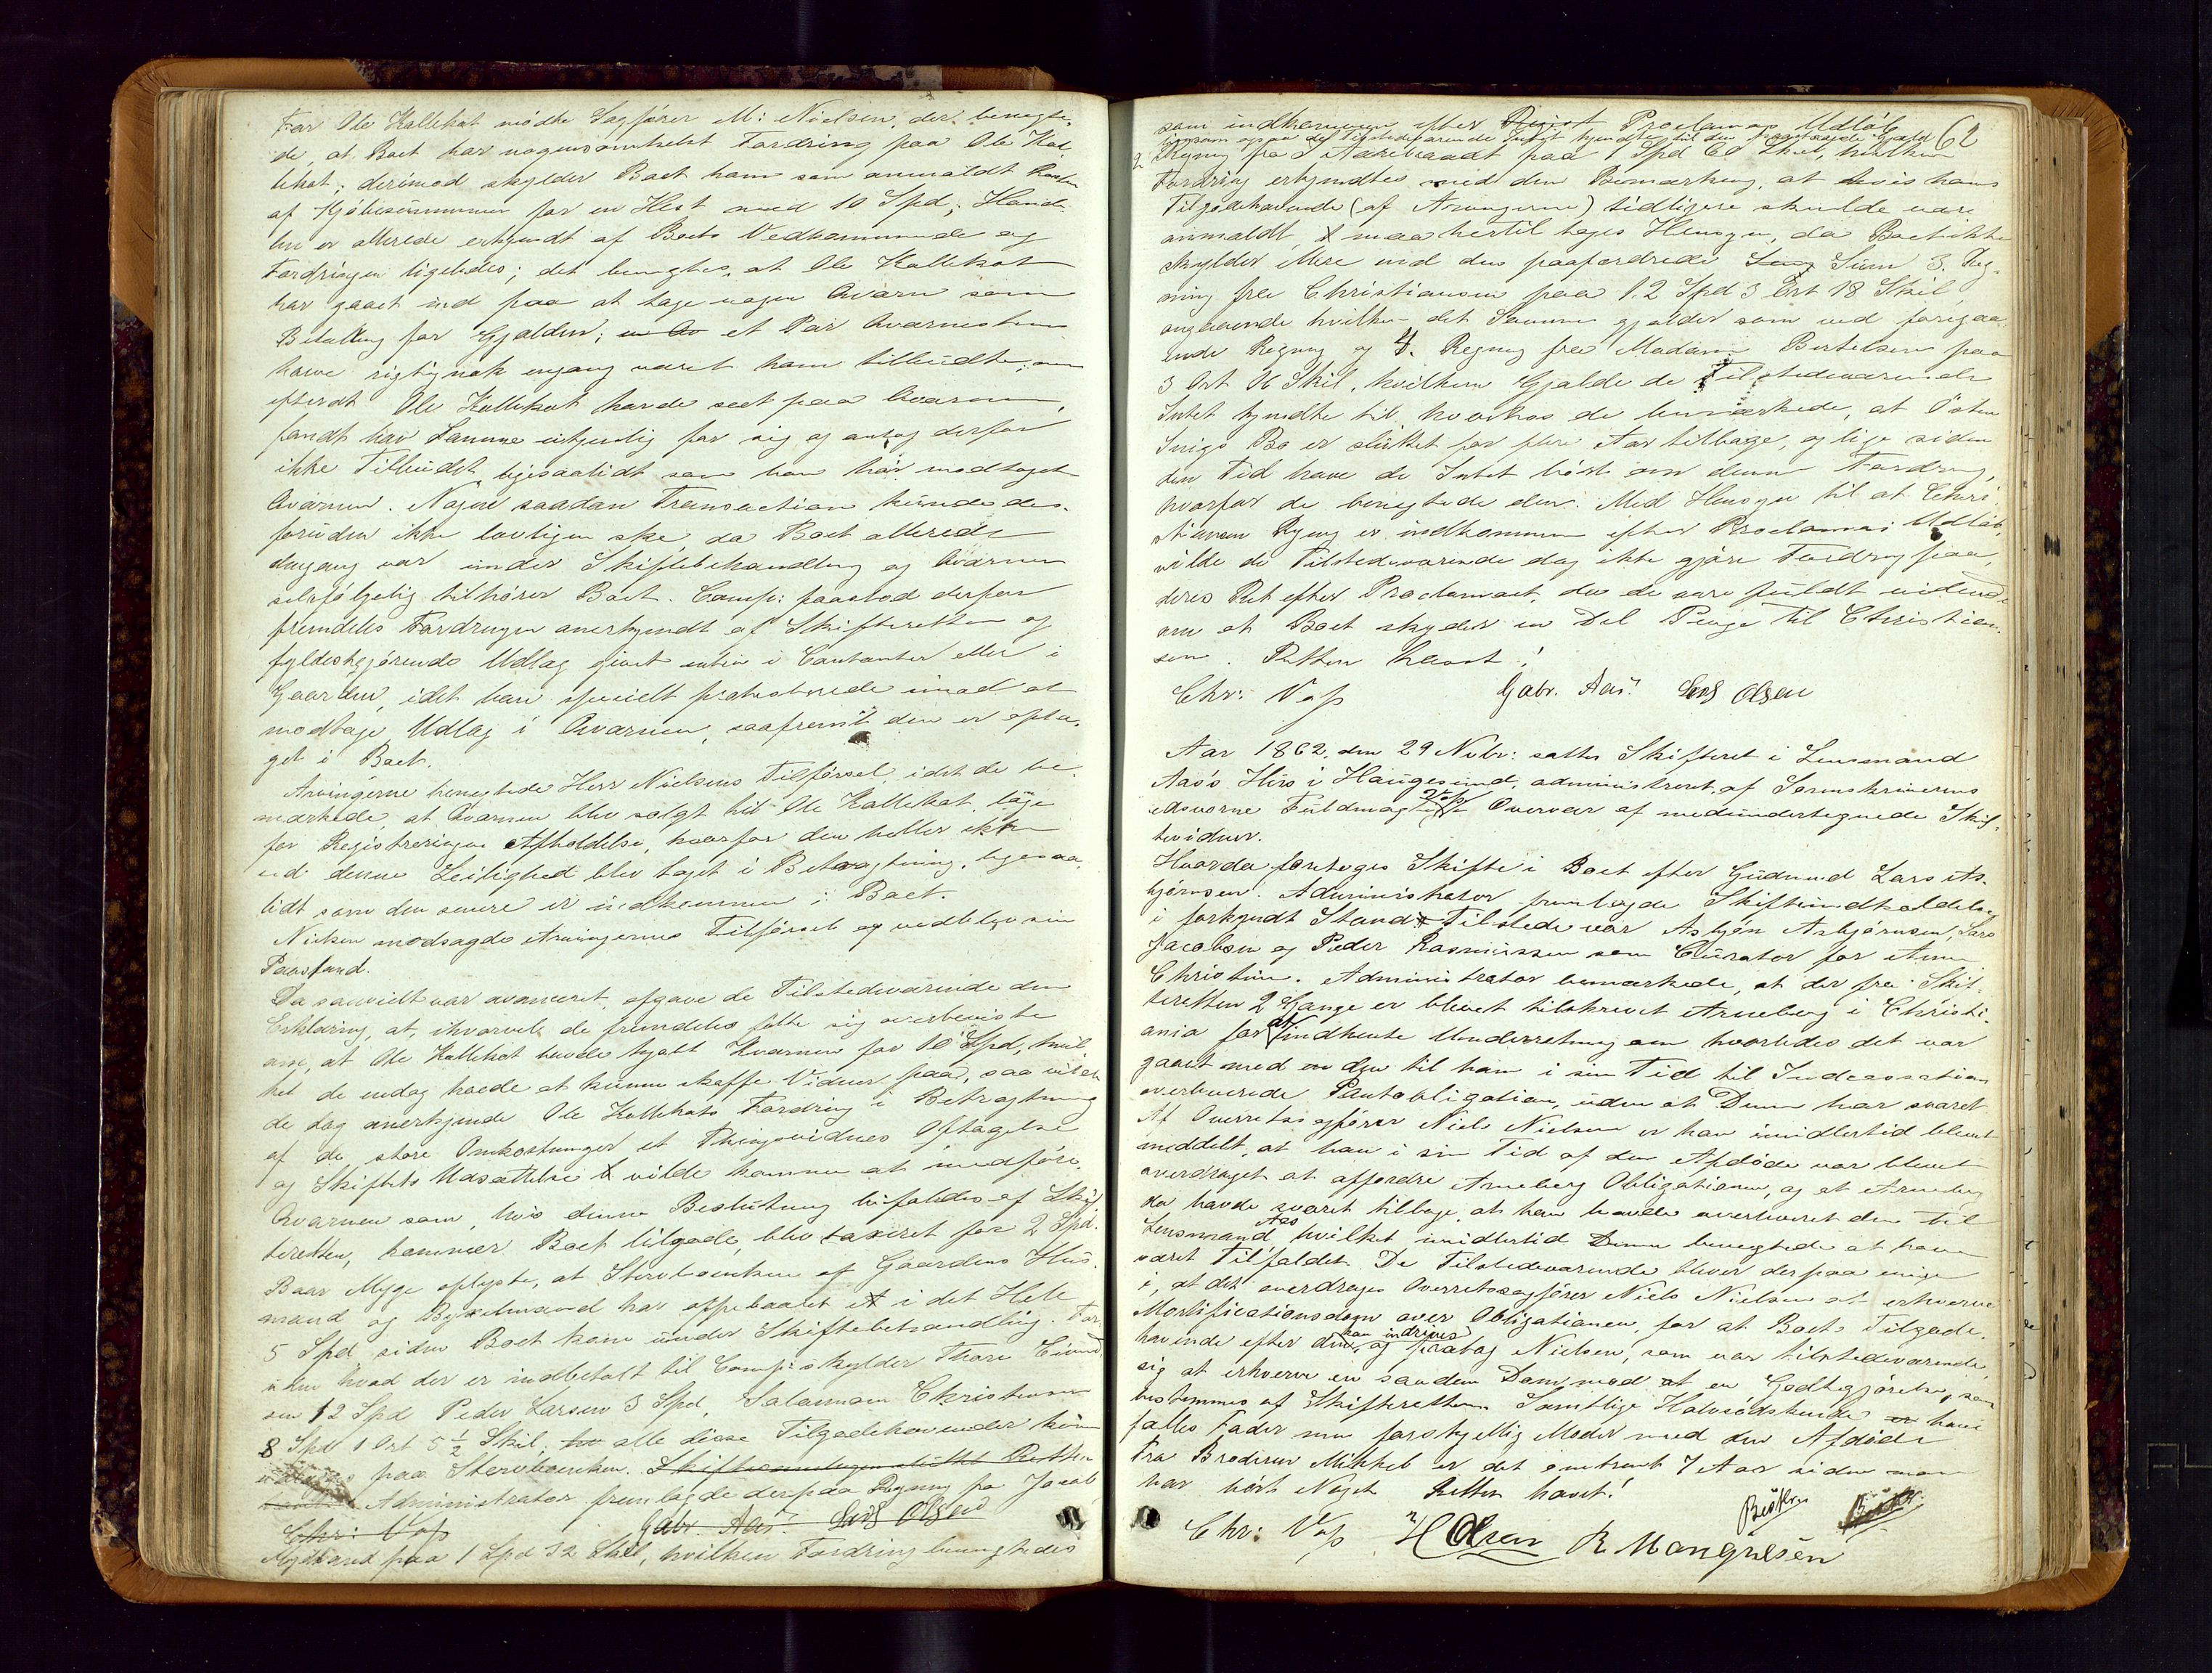 For Ole Kallekot mødte Sagfører M: Nielsen, der benegte-
de, at Boet har nogensomhelst Fordring paa Ole Kal-
lekot; derimod skylder Boet ham som anmældt Resten
af Kjøbesummen for en Hest med 10 Spd; Hand-
len er allerede erkjendt af Boets Vedkommende og
Fordringen ligeledes; det benegtes, at Ole Kallekot
har gaaet ind paa at tage nogen Qværn som
Betaling for Gjælden; et Par Qværnstene
have rigtignok engang været ham tilbudte, men
efterat Ole Kallekot havde seet paa Qværnen,
fandt han Samme utjenlig for sig og antog derfor
ikke Tilbudet, ligesaalidt som han har modtaget
Qværnen. Nogen saadan Transaction kunde des-
foruden ikke lovligen ske da Boet allerede
dengang var under Skiftebehandling og Qværnen
selvfølgelig tilhører Boet. Comp: paastod derfor
fremdeles Fordringen anerkjendt af Skifteretten og
fyldestgjørende Udlæg givet enten i Contanter eller i
Gaarden, idet han specielt protesterede imod at
modtage Udlæg i Qværnen, saafremt den er opta-
get i Boet.
Arvingerne benegtede Herr Nielsens Tilførsel, idet de be-
mærkede, at Qværnen blev solgt til Ole Kallekot længe
før Registreringens Afholdelse, hvorfor den heller ikke
ved denne Leilighed blev taget i Betragtning, ligesaa-
lidt som den senere er indkommen i Boet.
Nielsen modsagde Arvingernes Tilførsel og vedblev sin
Paastand.
Da saavidt var avanceret, afgave de Tilstedeværende den
Erklæring, at, ihvorvel de fremdeles følte sig overbeviste
om, at Ole Kallekot havde kjøbt Kværnen for 10 Spd, hvil-
ket de endog havde at kunne skaffe Vidner paa, saa ville
de dog anerkjende Ole Kallekots Fordring i Betragtning
af de store Omkostninger et Thingsvidnes Optagelse
og Skiftets Udsættelse vilde komme at medføre.
Qværnen som, hvis denne Beslutning bifaldes af Skif-
teretten, kommer Boet tilgode, blev taxeret for 2 Spd.
Baar Myge oplyste, at Stervboenken af Gaardens Hus-
mand og Bygselmand har oppebaaret i det Hele
5 Spd siden Boet kom under Skiftebehandling. For-
uden hvad der er indbetalt til Comp: skylder Thore Eivind-
sen 12 Spd Peder Larsen 3 Spd, Salamon Christensen
8 Spd 1 Ort 5 ½ Skil, alle disse Tilgodehavender kun
paa Stervboenken. Skiftesamlingen sluttet Retten
Administrator fremlagde derpaa Regning fra Jacob
Chr: Voss Gabr. Aas. Lars Olsen
Mydland paa 1 Spd 32 Skil, hvilken Fordring benegtedes
62
som indkommen efter Proclamas Udløb
ligesom ogsaa de Tilstedeværende Intet kjendte til den paastaaede Gjæld
2 Regning fra Aarebraadt paa 1 Spd 60 Skil, hvilken
Fordring erkjendtes med den Bemærkning, at hvis hans
Tilgodehavende (af Arvingerne) tidligere skulde være
anmældt, maa hertil tages Hensyn, da Boet ikke
skylder Mere end den paafordrede Sum 3. Reg-
ning fra Christiansen paa 12 Spd 3 Ort 18 Skil,
angaaende hvilken det Samme gjælder som ved foregaa-
ende Regning og 4. Regning fra Madam Bertelsen paa
3 Ort 16 Skil, hvilken Gjæld de Tilstedeværende
Intet kjendte til, hvorhos de bemærkede, at Østen
Bo er sluttet for flere Aar tilbage, og lige siden
den Tid have de Intet hørt om denne Fordring,
hvorfor de benegtede den. Med Hensyn til at Chri-
stiansen Regning er indkommen efter Proclamas Udløb,
vilde de Tilstedeværende dog ikke gjøre Fordring paa
deres Ret efter Proclamaet, da de vare fuldt vidende
om at Boet skylder en Del Penge til Christian-
sen. Retten hævet!
Chr: Voss Gabr. Aas. Lars Olsen
Aar 1862, den 29 Novbr: sattes Skifteret i Lensmand
Aas's Hus i Haugesund, administreret af Sorenskriverens
edsvorne Fuldmægtig Voss i Overvær af medundertegnede Skif-
tevidner.
Hvorda foretoges Skifte i Boet efter Gudmund Lars As-
bjørnsen. Administrator fremlagde Skifteindkaldelse
i forkyndt Stand. Tilstede var Asbjørn Asbjørnsen, Lars
Jacobsen og Peder Rasmussen som Curator for Anne
Christine. Administrator bemærkede, at der fra Skif-
teretten 2 Gange er blevet tilskrevet Arneberg i Christi-
ania for at indhente Underretning om hvorledes det var
gaaet med den til ham i sin Tid til Indcassation
overleverede Pantobligation, uden at Denne har svaret.
Af Overretssagfører Niels Nielsen er han imidlertid blevet
meddelt, at han i sin Tid af den Afdøde var blevet
overdraget at affordre Arneberg Obligationen, og at Arneberg
da havde svaret tilbage, at han havde overleveret den til
Lensmand Aas hvilket imidlertid Denne benegtede at have
været Tilfældet. De Tilstedeværende bleve derpaa enige
i, at det overdrages Overretssagfører Niels Nielsen at erhverve
Mortificationsdom over Obligationen, for at Boets Tilgode-
havende efter den kan inddrives, og paatog Nielsen, som var tilstedeværende,
sig at erhverve en saadan Dom mod en Godtgjørelse, som
bestemmes af Skifteretten. Samtlige Halvsødskende have
fælles Fader men forskjellig Moder med den Afdøde
Fra Broderen Mikkel er det omtrent 7 Aar siden man
har hørt Noget. Retten hævet!
Chr: Voss H Olsen R Mangnesen